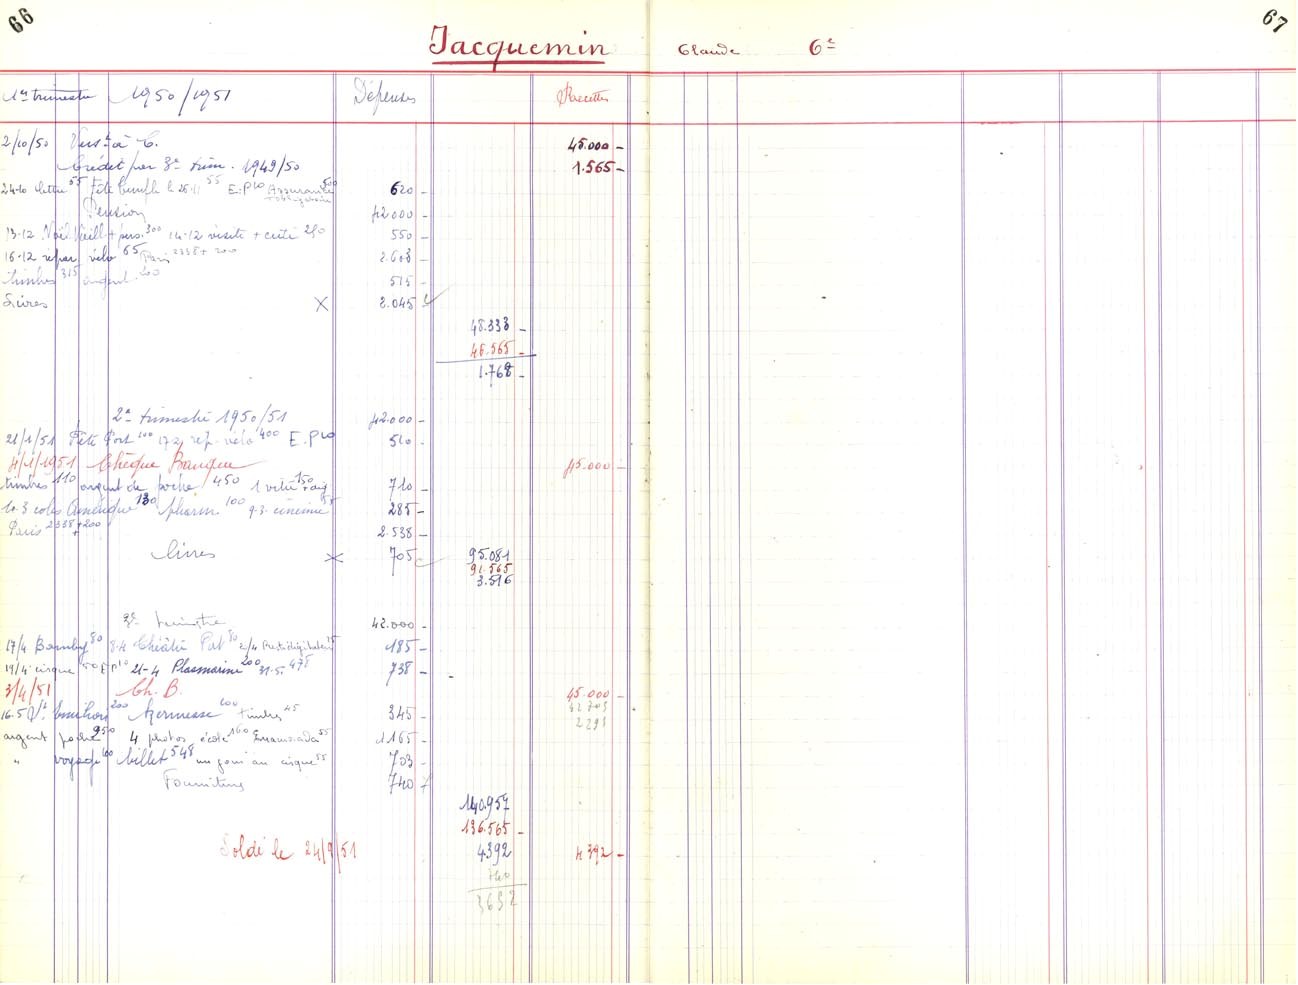 66
67
Jacquemin Claude 6e
1er trimestre 1950/1951 Dépenses Recettes
2/10/50 Verst à C. 45.000 -
Crédit par 3e trim. 1949/50 1.565 -
24-10 lettre 55 Fête le 26.11 55 E.P 10 Assurance 500 620 -
Pension 42000 -
13-12 Noël Vieill + pers. 300 14-12 visite + cité 250 550 -
16-12 répar vélo 65 Paris 2338 + 200 2.603 -
timbres 315 argent 200 515 -
Livres X 2.045
48.333 -
46.565 -
1.768 -
2e trimestre 1950/51 42.000 -
21/1/51 Fête Port 100 rép. vélo 400 E.P 10 510 -
4/1/1951 Chèque Banque 45.000 -
timbres 110 argent de poche 450 150 710 -
10.3 Amérique 130 pharm. 100 9.3 cinéma 55 285 -
Paris 2338 + 200 2.538 -
livres X 705 95.081
91.565
3.516
3e trimestre 42.000 -
17/4 80 8-4 Théâtre 80 2/4 Prestidigitateur 25 185 -
19/4 cirque 50 E.P 10 21-4 Plasmarine 200 31.5. 478 738 -
3/4/51 Ch. B. 45.000 -
16.5 200 Kermesse 100 timbres 45 345 -
2291
argent poche 950 4 photos école 160 55 1165 -
" voyage 100 billet 548 au cirque 55 703 -
Fournitures 740
140.957
136.565 -
Soldé le 24/9/51 4392 4392 -
740
3652